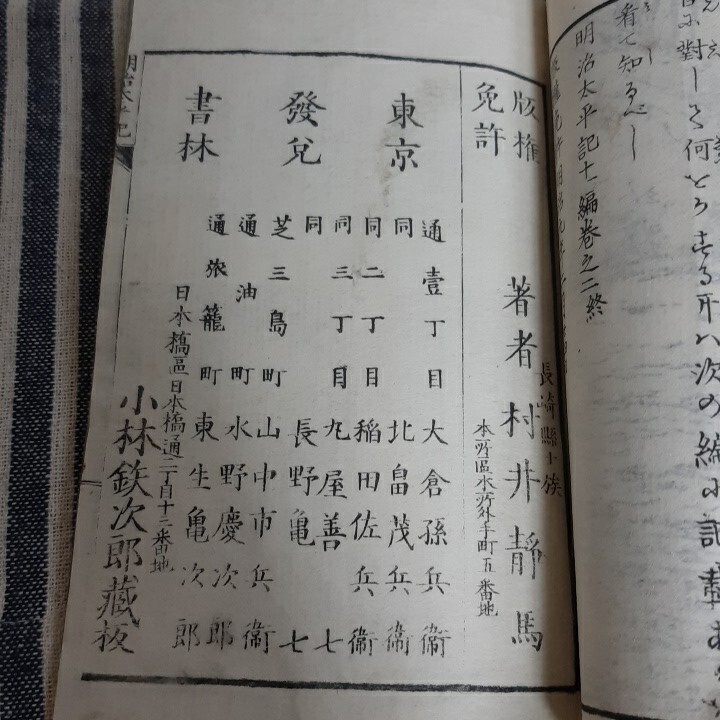 看て知るべし
明治太平記十一編巻之二終
版權
免許
長崎縣士族
著者 村井靜馬
本所區本所外手町五番地
東京
發兌
書林
通壹丁目 大倉孫兵衞
同 北畠茂兵衞
同二丁目 稲田佐兵衞
同三丁目 丸屋善七
同 長野亀七
芝三島町 山中市兵衞
通油町 水野慶次郎
通旅籠町 東生亀次郎
日本橋區日本橋通二丁目十二番地
小林鉄次郎藏板
明治太平記